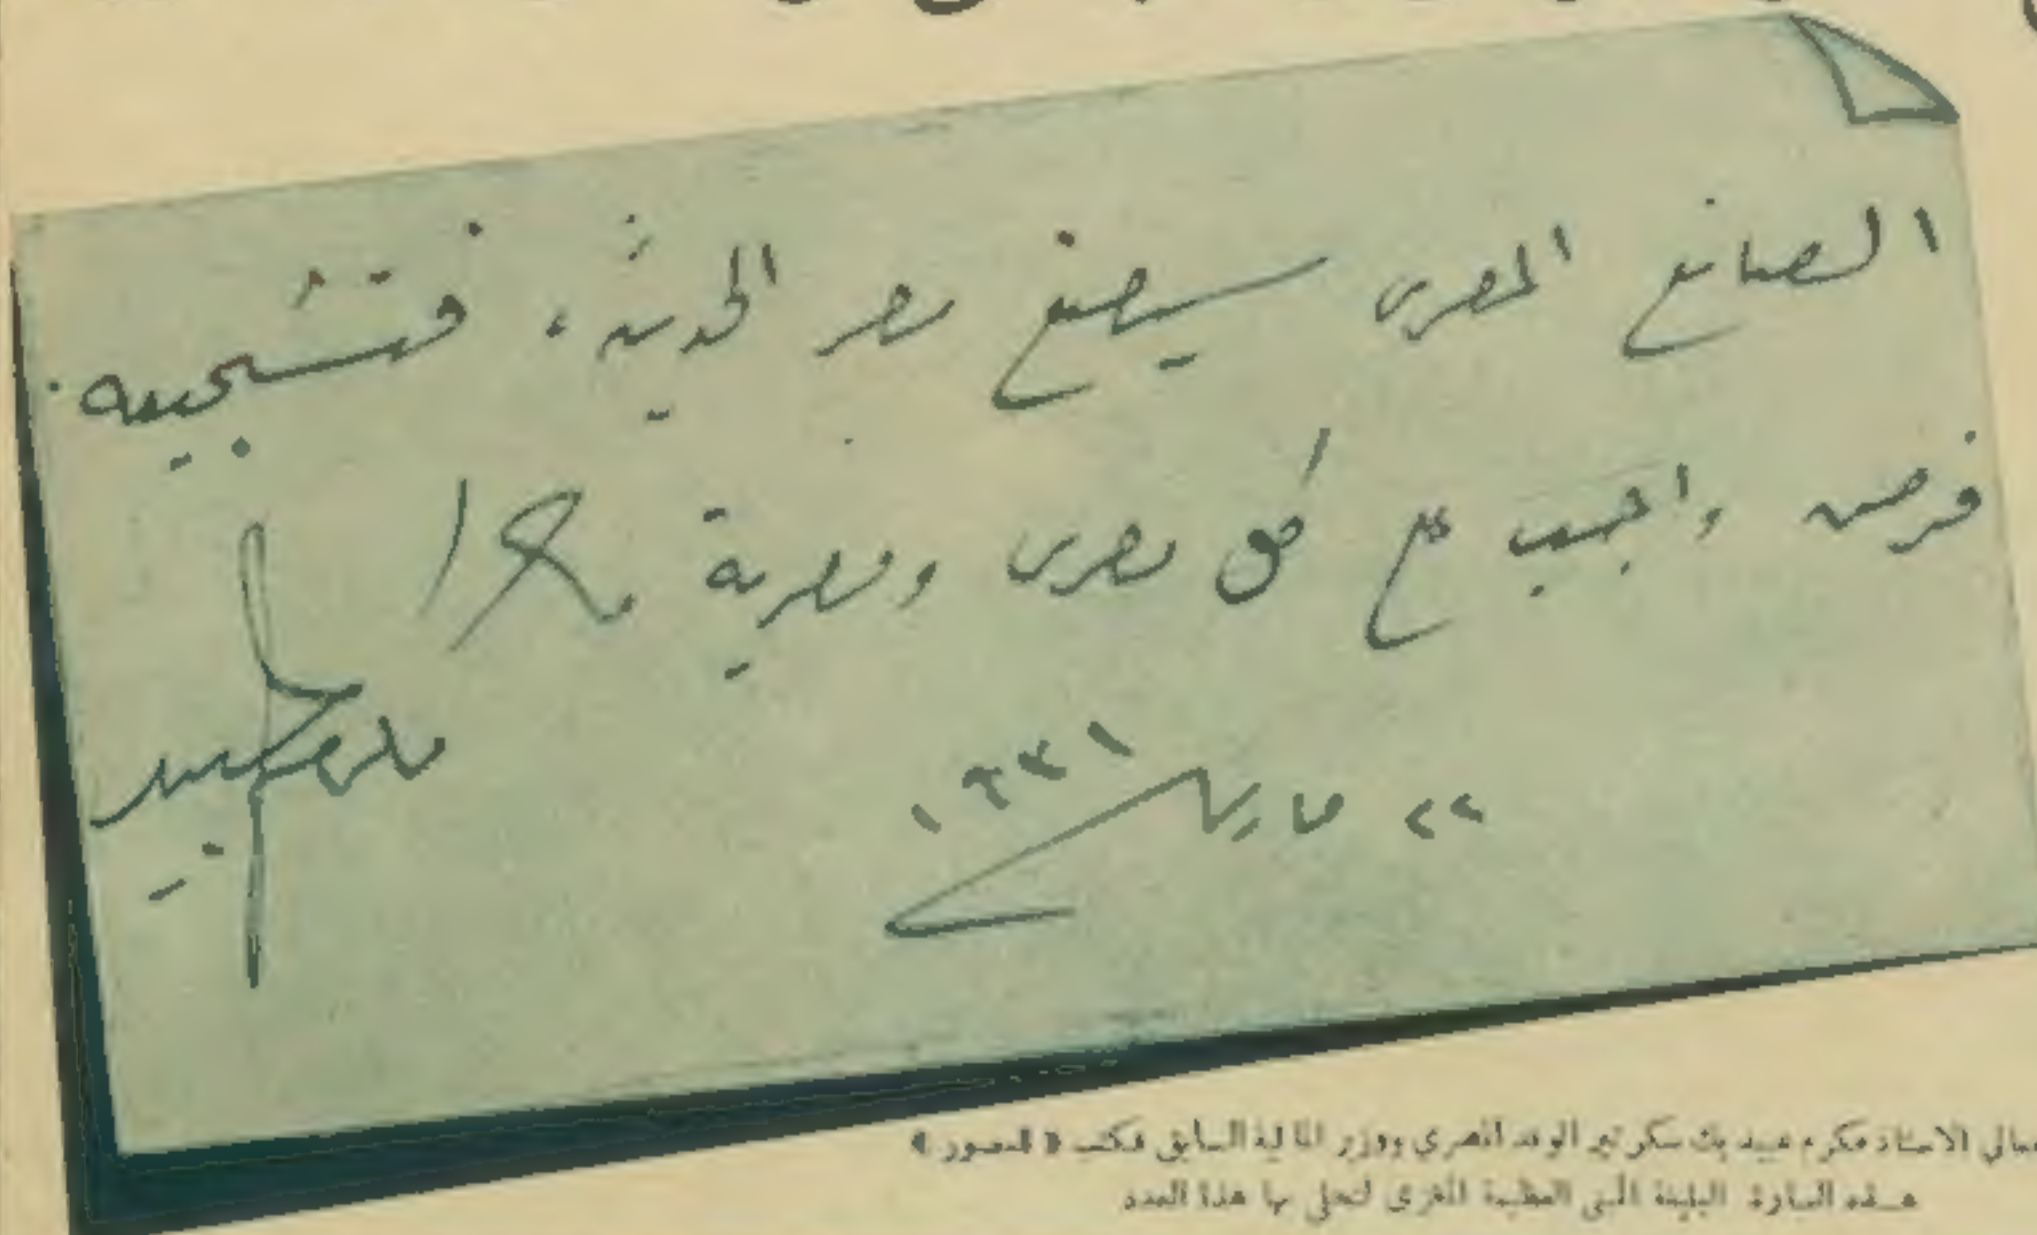 الصانع المصرى سيصنع مصر الحديثة، فتشجيعه
فرض واجب على كل مصرى ومصرية
مكرم عبيد
٢٢ مارس ١٩٣١
معالي الاستاذ مكرم عبيد بك سكرتير الوفد المصري ووزير المالية السابق فكتب « المصور »
هذه العبارة البليغة المبنى العظيمة المغزى لنحلي بها هذا العدد